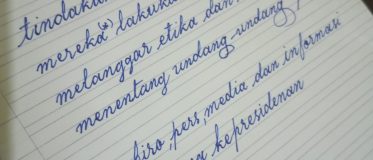 mereka(*) lakuka
melanggar etika dan
menentang undang undang
biro, pers, media dan informasi
kepresidenan